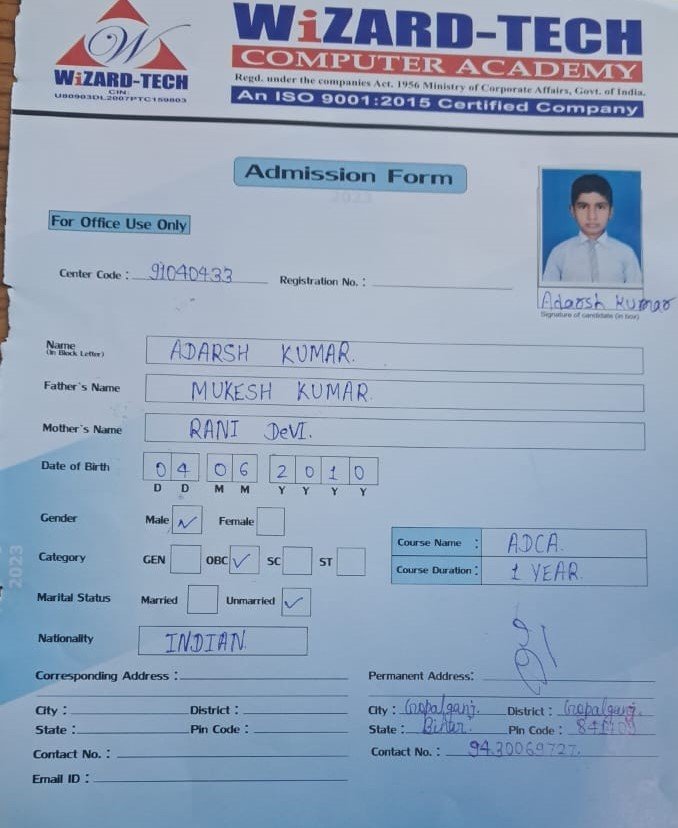 WiZARD-TECH
COMPUTER ACADEMY
Regd. under the companies Act. 1956 Ministry of Corporate Affairs, Govt. of India.
An ISO 9001:2015 Certified Company
W
WiZARD-TECH
CIN:
U80903DL2007PTC159803
Admission Form
2023
For Office Use Only
Center Code : 91040433 Registration No. :
Adarsh Kumar
Signature of candidate (in box)
Name ADARSH KUMAR.
(In Block Letter)
Father's Name MUKESH KUMAR.
Mother's Name RANI DeVI.
Date of Birth 04 06 2010
D D M M Y Y Y Y
Gender Male Female
Course Name : ADCA.
Category GEN OBC SC ST
Course Duration : 1 YEAR.
Marital Status Married Unmarried
Nationality INDIAN.
2023
Corresponding Address : Permanent Address:
City : District : City : Gopalganj. District : Gopalganj.
State : Pin Code : State : Bihar. Pin Code :
Contact No. : Contact No. : 9430069727.
Email ID :